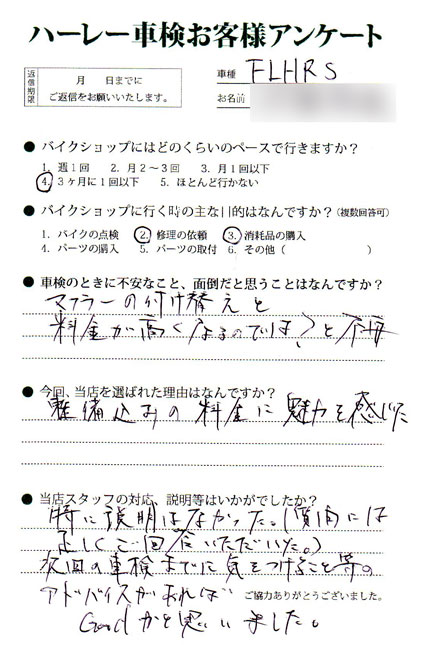 ハーレー車検お客様アンケート
返信期限
月　日までに
ご返信をお願いいたします。
車種 FLHRS
お名前
● バイクショップにはどのくらいのペースで行きますか？
1. 週1回　2. 月2～3回　3. 月1回以下
4. 3ヶ月に1回以下　5. ほとんど行かない
● バイクショップに行く時の主な目的はなんですか？（複数回答可）
1. バイクの点検　2. 修理の依頼　3. 消耗品の購入
4. パーツの購入　5. パーツの取付　6. その他（　　　　）
● 車検のときに不安なこと、面倒だと思うことはなんですか？
マフラーの付け替えと
料金が高くなるのでは？と不安
● 今回、当店を選ばれた理由はなんですか？
整備込みの料金に魅力を感じた
● 当店スタッフの対応、説明等はいかがでしたか？
特に説明はなかった。(質問には
正しくご回答いただいた。)
次回の車検までに気をつけること等の
アドバイスがあれば
ご協力ありがとうございました。
Goodかと思いました。